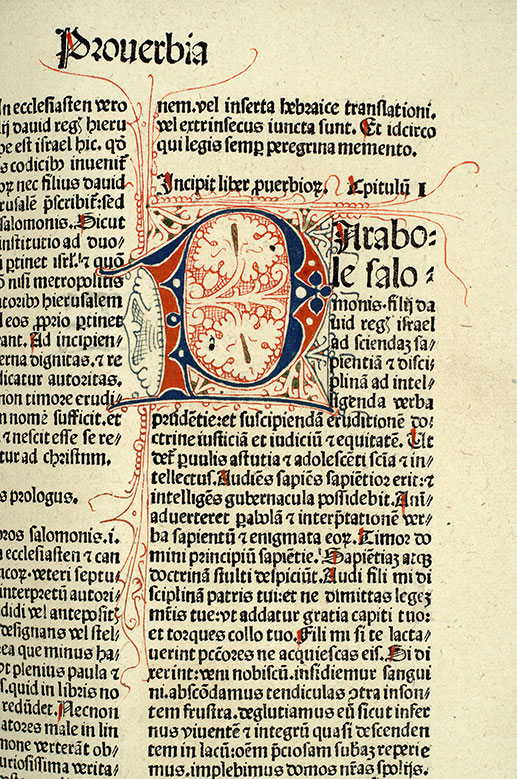 Prouerbia
In ecclesiasten vero
lij dauid reg hieru
pe est israel hic. qđ
s codicibꝰ inuenit͛
eoꝝ nec filius dauid
erusalē p̄scribit͛: sed
salomonis. Sicut
institutio ad duo⸗
ꝑtinet isrl. ⁊ quō
ō nisi metropolitis
atoribꝰ hierusalem
l eos ꝓprio ꝑtinet
rant. Ad incipien⸗
erna dignitas. ⁊ re
dicatur autoritas.
non timore erudi⸗
n nomē sufficit. et
⁊ nescit esse se re⸗
tur ad christum.
s prologus.
bros salomonis. i.
a ecclesiasten ⁊ can
ncoꝝ. veteri septu
interpretū autori⸗
didi vel antepositꝭ
designans vel stel⸗
ea que minus ha⸗
vt plenius paula ⁊
s. quid in libris no
redūdet. Necnon
atores male in lin
mone verterāt ob⸗
uriosissima verita⸗
nem. vel inserta hebraice translationi.
vel extrinsecus iuncta sunt. Et idcirco
qui legis semꝑ peregrina memento.
Incipit liber ꝓuerbioꝝ. Capitulū I
PArabo⸗
le salo⸗
monis. filij da
uid regꝭ israel
ad sciendā sa⸗
pientiā ⁊ disci⸗
plinā ad intel⸗
ligenda verba
prudētie: et suscipiendā eruditionē do⸗
ctrine iusticiā et iudiciū ⁊ equitatē. Ut
det͛ ꝑuulis astutia ⁊ adolescēti sciā ⁊ in⸗
tellectus. Audiēs sapiēs sapiētior erit: ⁊
intelligēs gubernacula possidebit. Aīa⸗
aduerteret ꝑabolā ⁊ interp̄tationē ver⸗
ba sapientū ⁊ enigmata eoꝝ. Timor do
mini principiū sapiētie. Sapiētiaꝫ atqꝫ
doctrinā stulti despiciūt. Audi fili mi di
sciplinā patris tui: et ne dimittas legeꝫ
mr̄is tue: vt addatur gratia capiti tuo:
et torques collo tuo. Fili mi si te lacta⸗
uerint pctōres ne acquiescas eis. Si di
xerint: veni nobiscū. insidiemur sangui
ni. abscōdamus tendiculas ꝯtra inson⸗
tem frustra. deglutiamus eū sicut infer
nus viuentē ⁊ integrū quasi descenden
tem in lacū: oēm p̄ciosam subaꝫ reperie
mus. implebimus domos nr̄as spolijs.